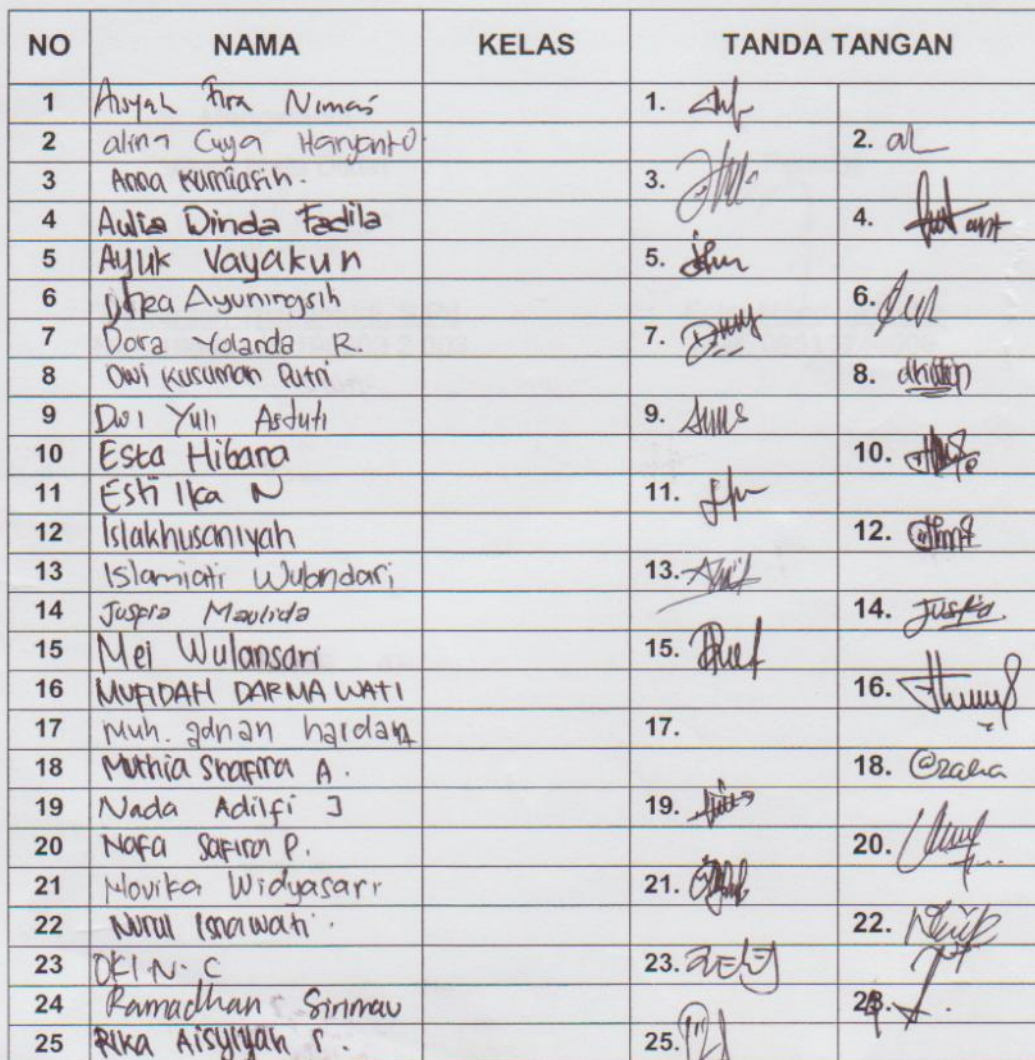 NO NAMA KELAS TANDA TANGAN
1 Aisyah Fira Nimas 1.
2 alina Cuya Haryanto. 2. al
3 Anna Kurniasih. 3.
4 Aulia Dinda Fadila 4.
5 Ayuk Vayakun 5.
6 Ayuningsih 6.
7 Dora Yolanda R. 7.
8 Dwi Kusuman Putri 8.
9 Dwi Yuli Astuti 9.
10 Esta Hibara 10.
11 Esti Ika N 11.
12 Islakhusaniyah 12.
13 Islamiati Wulandari 13.
14 Jusfia Maulida 14.
15 Mei Wulansari 15.
16 MUFIDAH DARMAWATI 16.
17 Muh. adnan hardan 17.
18 Muthia Shafira A. 18.
19 Nada Adilfi J 19.
20 Nafa Safira P. 20.
21 Novika Widyasari 21.
22 Nurul Isnawati 22.
23 OKI. N. C 23.
24 Ramadhan Sirimau
25 Rika Aisyiyah 25.